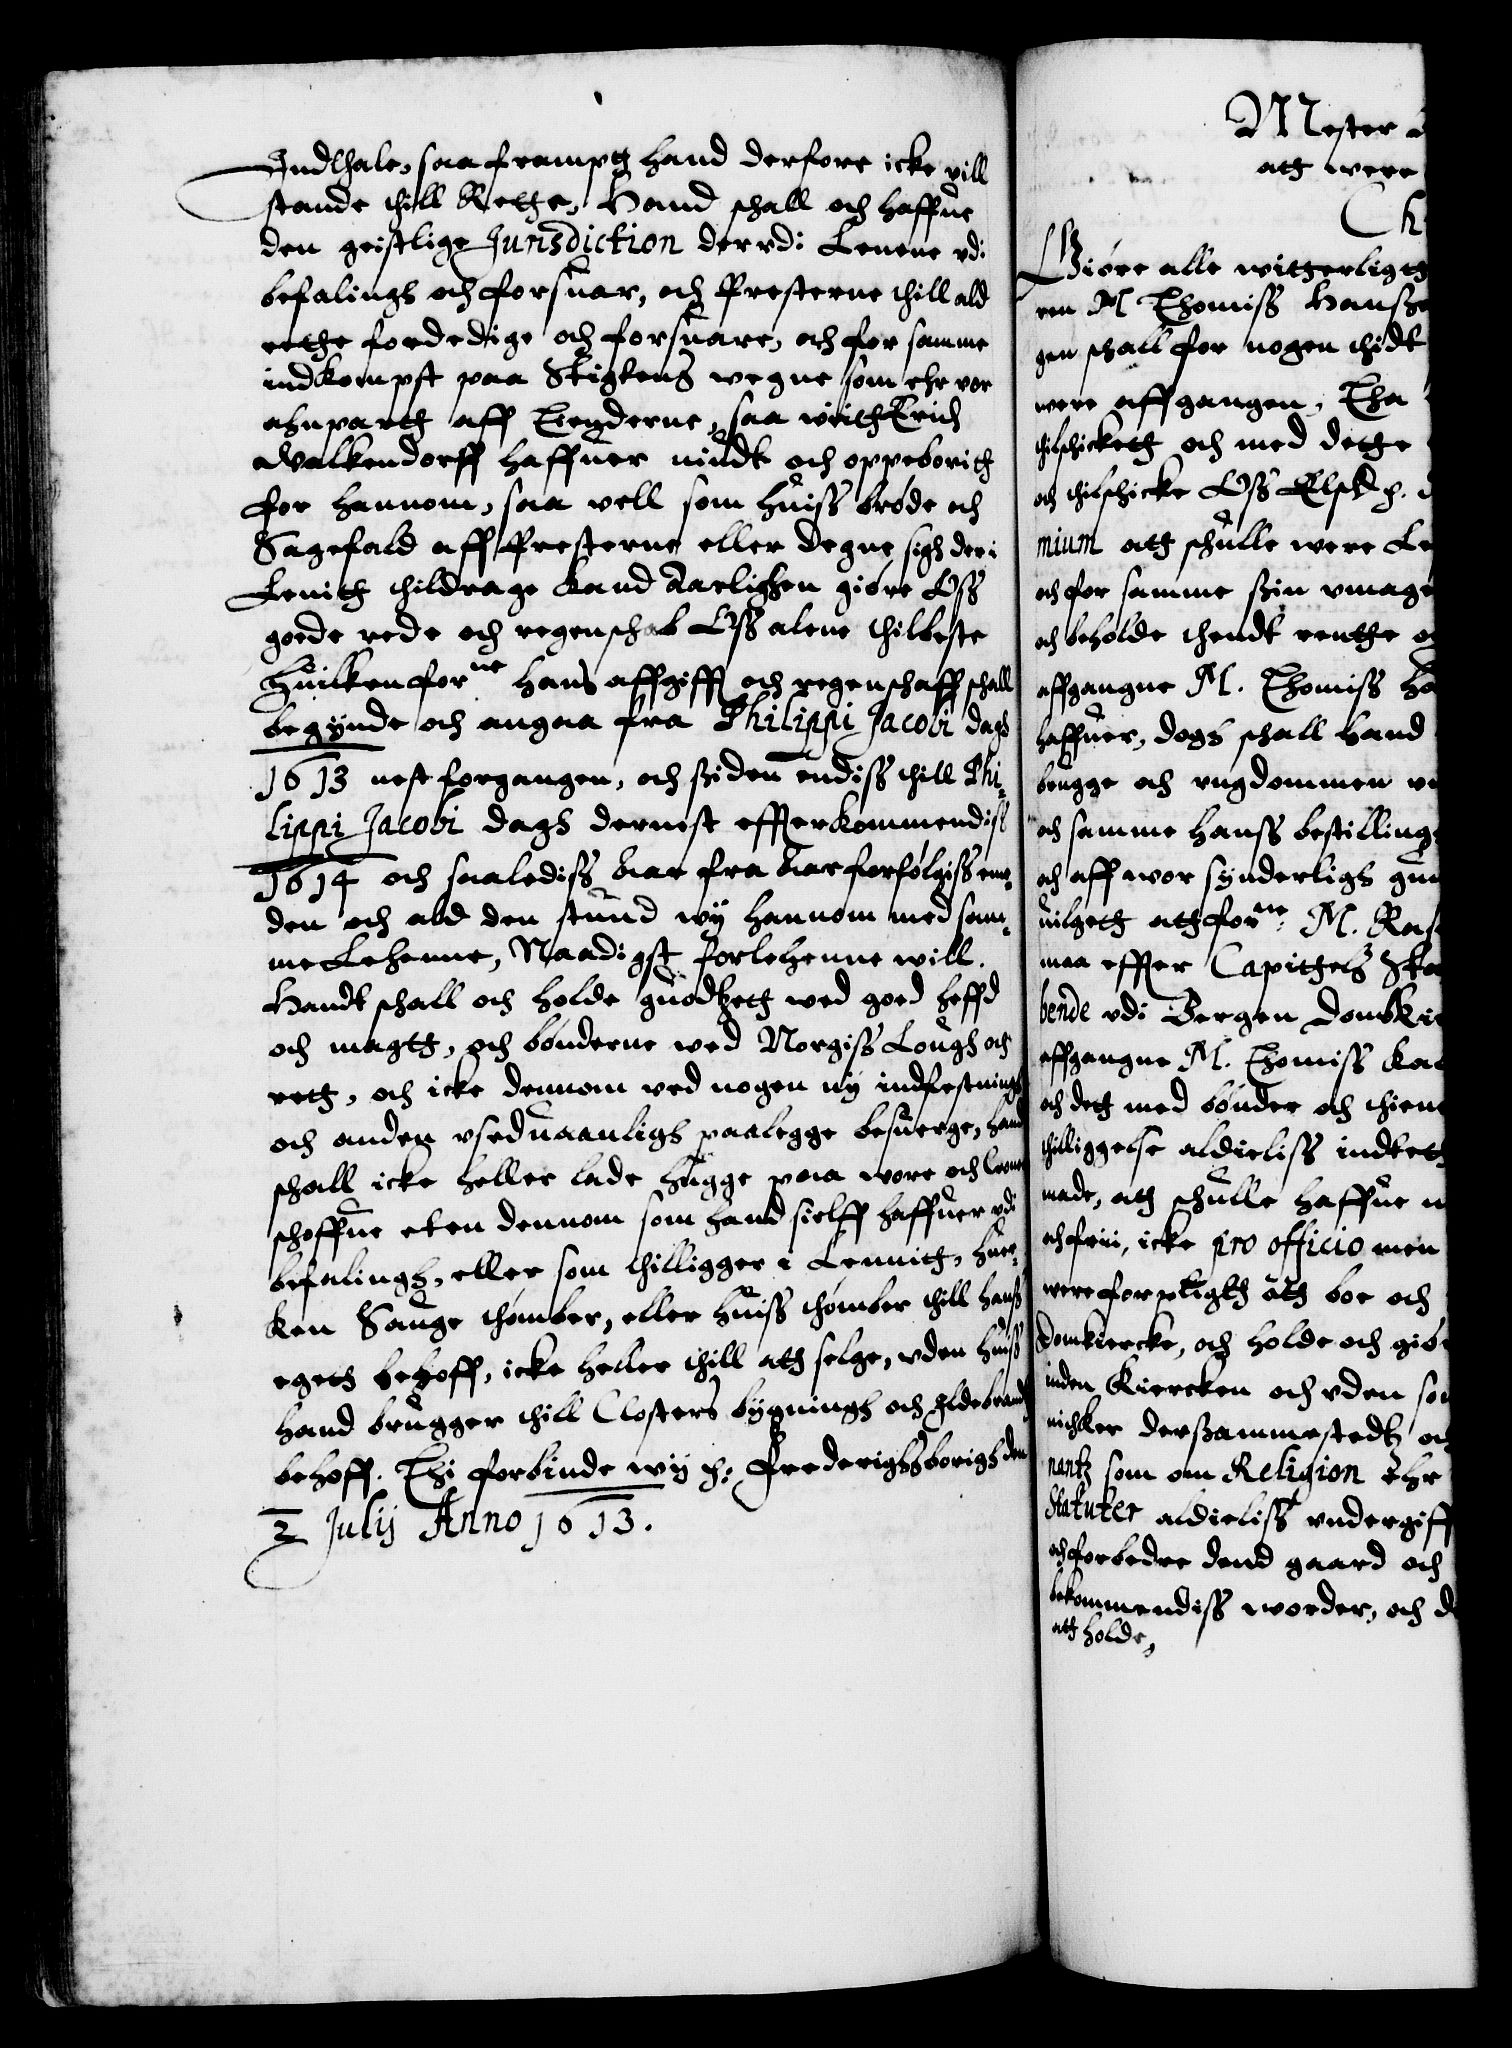 Indthale, saa frampt hand derfore icke vill
stande thill Rette, Hand schall och haffue
den geistlige Jurisdiction der vdi Lenene vdi
befalings och forsuar, och Presterne thill ald
rette fordedige och forsuare, och for samme
indkompst paa Stigtens wegne som ehr vor
anpartt aff Tienderne, saa witt Erich
Walkendorff haffuer nudt och oppeboritt
for hannom, saa vell som huiss brøde och
Sagefald aff Presterne eller Degne sigh der i
Lenith thildrage kand Aarligen giøre Oss
goede rede och regenschab Oss alene thilbeste
Huilken for<sup>ne</sup> Hans affgifft och regenschaff schall
begynde och angaa fra Philippi Jacobi dagh
1613 nest forgangen, och siden endiss thill Phi-
lippi Jacobi dagh dernest efftterkommendiss
1614 och saalediss Aar fra Aar forfølgiss eme-
den och ald den stund wy hannom med sam-
me Lehenne, Naadigst forlehenne will.
Handt schall och holde guodtzett wed goed heffd
och magtt, och bønderne wed Norgiss Lough och
rett, och icke dennom ved nogen ny indfestningh
och anden vseduaanligh paalegge besuerge, hand
schall icke heller lade hugge paa wore och Cronens
schoffue eten dennom som hand sielff haffuer vdi
befalingh, eller som thilligger i Lennith, huer-
ken Sauge thømber, eller huiss thømber thill hanss
egett behoff, icke heller thill att selge, vden huiss
hand brugger thill Closters bygningh och Ildebrands
behoff. Thi forbinde wy p: Frederighssborigh den
2 Julij Anno 1613.
Mester
att were
Ch
Giøre alle witterligtt
ren M Thomiss Hansse
gen schall for nogen thidt
were affgangen, Tha
thilschickett och med dette
och thilschicke Oss Elsk. p. d
mium att schulle were Le
och for samme sin vmage
och beholde thendt rentthe o
affgangne M. Thomiss Ha
haffuer, dogh schall hand
brugge och vngdommen
och samme hanss bestillingh
och aff wor synderligh gun
uilgett att for<sup>ne</sup>: M. Ras
maa effter Capittels Sta
bende vdi Bergen Domkir
affgangne M. Thomiss
och dett med bønder och thiene
thilliggelse aldieliss indtect
made, att schulle haffue
och frii, icke pro officio men
were forpligtt att boe och
Domkiercke, och holde och giør
inden Kiercken och vden so
nichker dersammestedtz oc
nantz som om Religion ehr
Statuter aldieliss vndergiff
och forbedre dend gaard och
bekommendiss worder, och d
att holde,